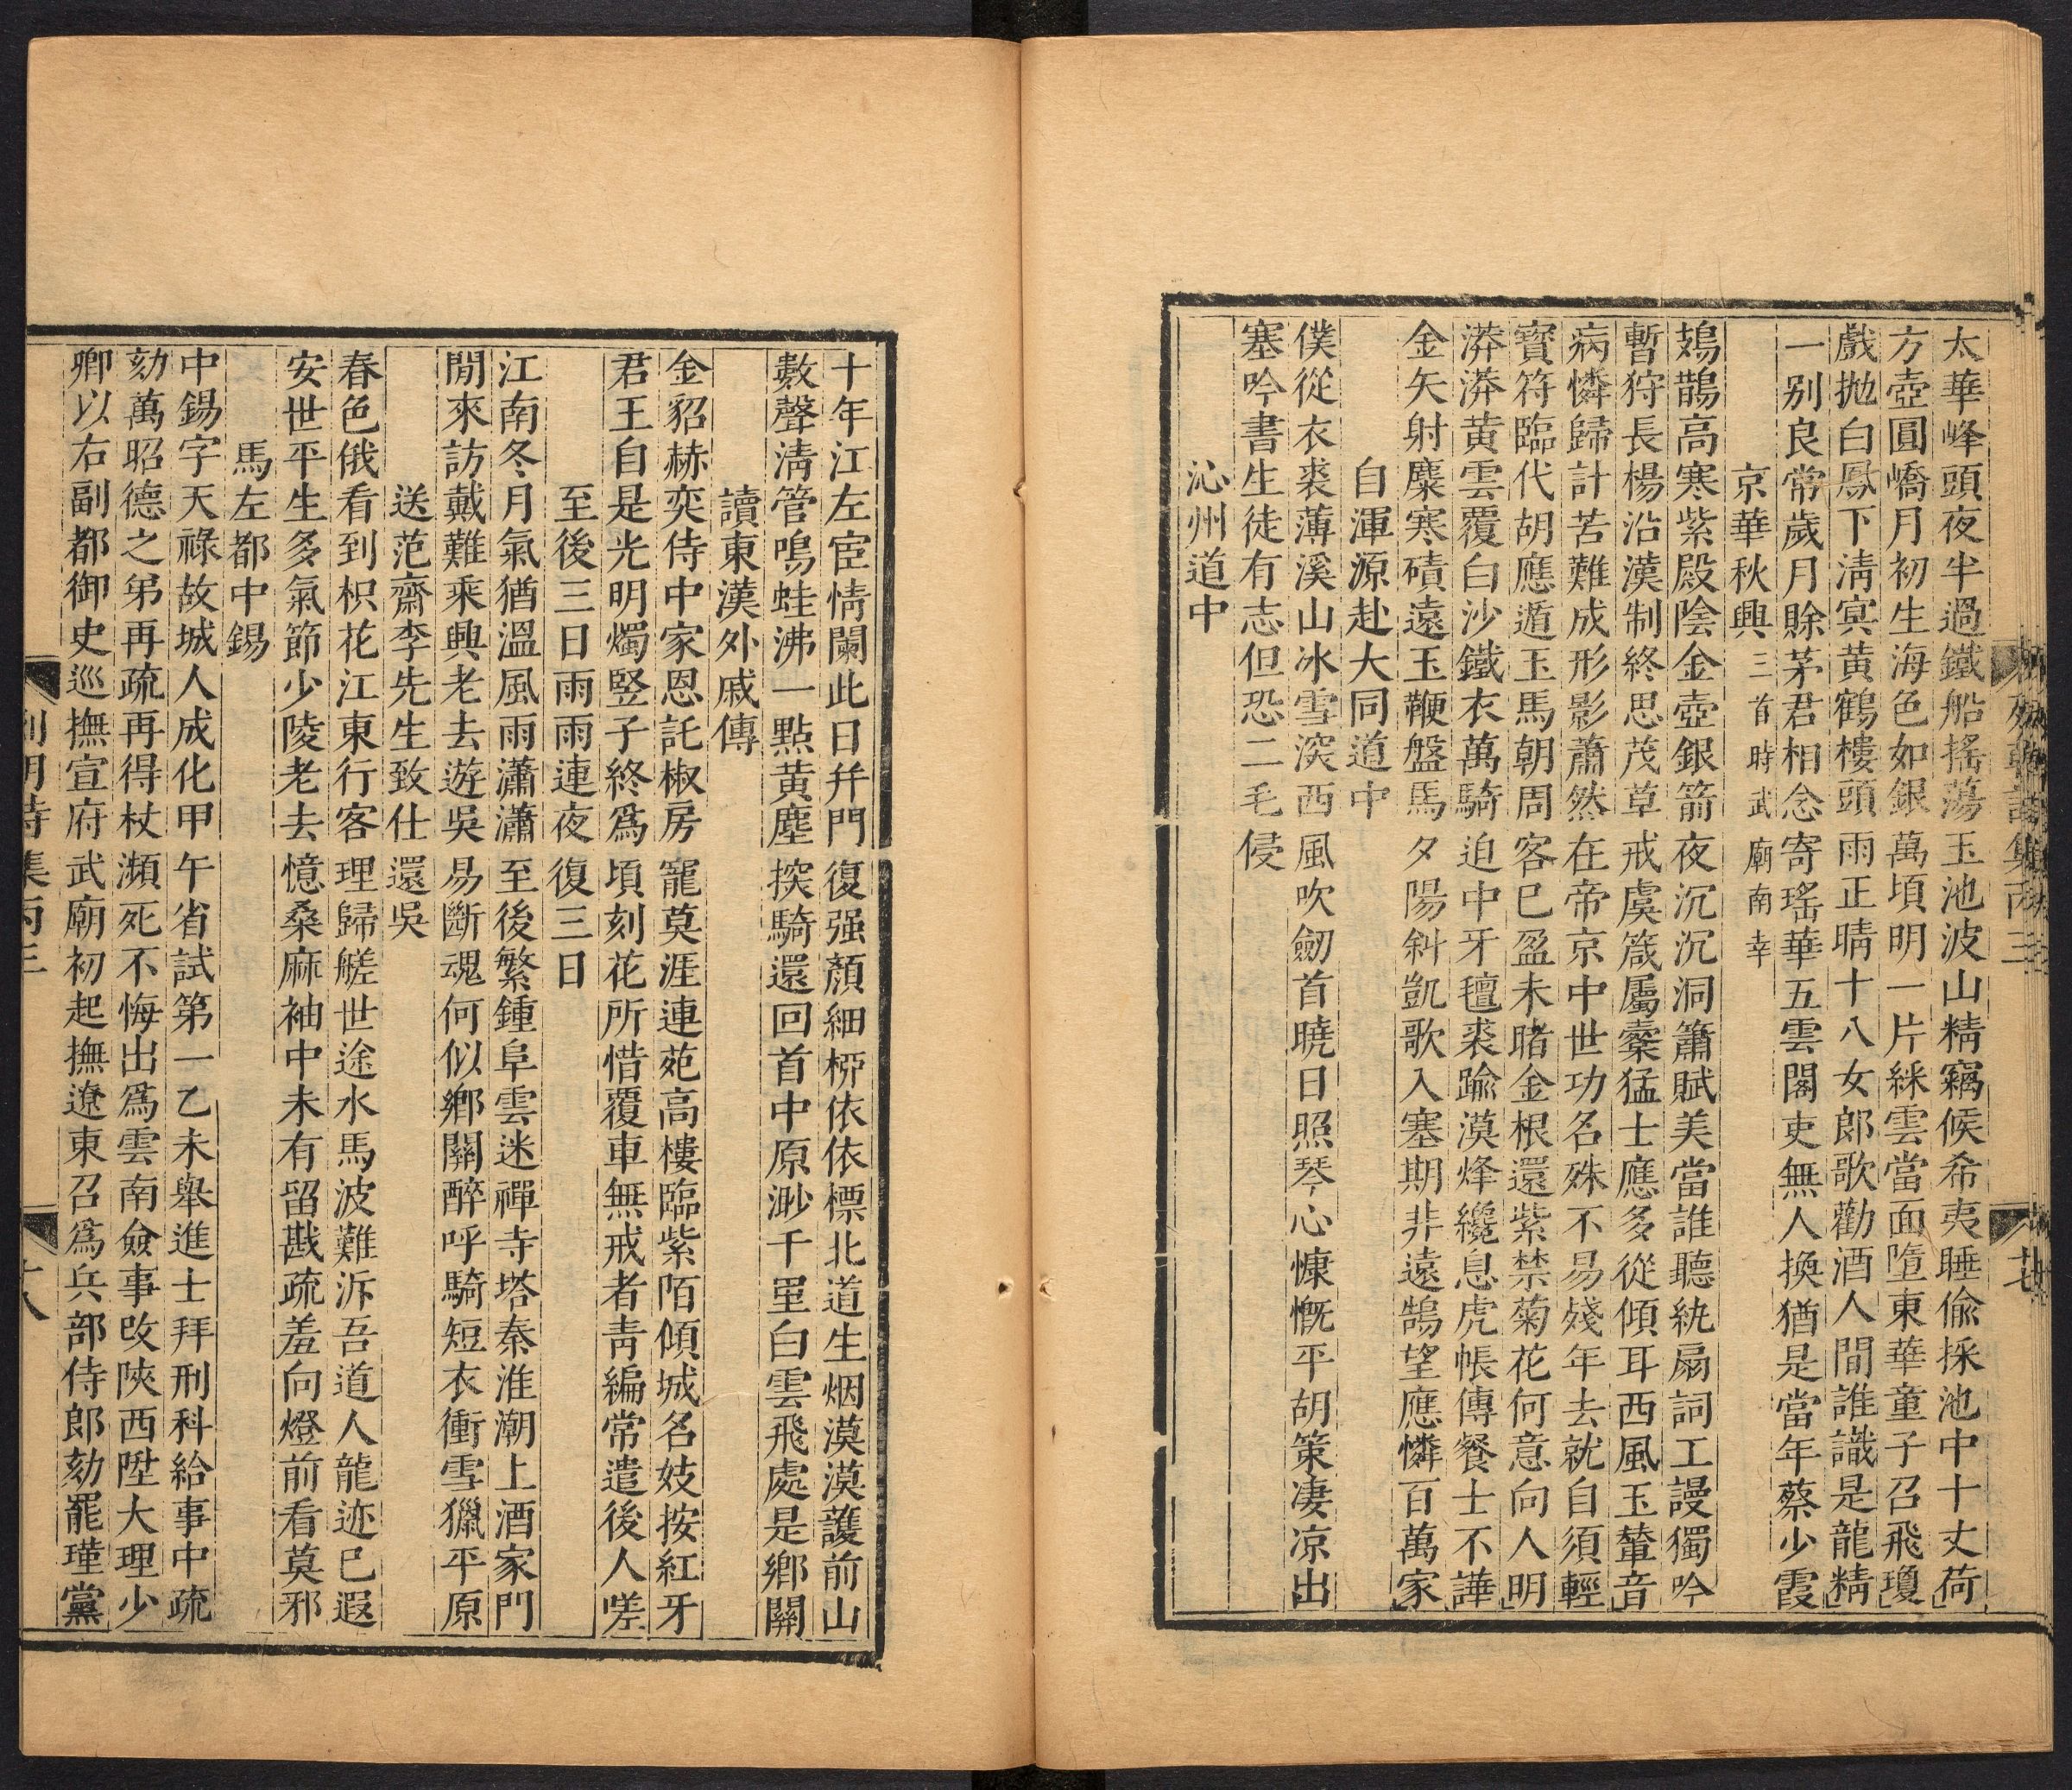 太華峰頭夜半過鐵船搖蕩玉池波山精竊候希夷睡偷採池中十丈荷
方壺圓嶠月初生海色如銀萬頃明一片綵雲當面墮東華童子召飛瓊
戲拋白鳳下淸冥黃鶴樓頭雨正晴十八女郎歌勸酒人間誰識是龍精
一别良常歲月賖茅君相念寄瑤華五雲閣吏無人換猶是當年蔡少霞
京華秋興三首時武廟南幸
鳷鵲高寒紫殿陰金壺銀箭夜沉沉洞簫賦美當誰聽紈扇詞工謾獨吟
暫狩長楊沿漢制終思茂草戒虞箴屬櫜猛士應多從傾耳西風玉輦音
病憐歸計苦難成形影蕭然在帝京中世功名殊不易殘年去就自須輕
寳符臨代胡應遁玉馬朝周客已盈未睹金根還紫禁菊花何意向人明
漭漭黃雲覆白沙鐵衣萬騎迫中牙氊裘踰漠烽纔息虎帳傳餐士不譁
金矢射麋寒磧遠玉鞭盤馬夕陽斜凱歌入塞期非遠鵠望應憐百萬家
自渾源赴大同道中
僕從衣裘薄溪山冰雪深西風吹劒首曉日照琴心慷慨平胡策凄凉出
塞吟書生徒有志但恐二毛侵
沁州道中
十年江左宦情闌此日幷門復强顏細柳依依標北道生烟漠漠護前山
數聲淸管鳴蛙沸一點黃塵探騎還回首中原渺千里白雲飛處是鄉關
讀東漢外戚傳
金貂赫奕侍中家恩託椒房寵莫涯連苑高樓臨紫陌傾城名妓按紅牙
君王自是光明燭竪子終爲頃刻花所惜覆車無戒者靑編常遣後人嗟
至後三日雨雨連夜復三日
江南冬月氣猶溫風雨瀟瀟至後繁鍾阜雲迷禪寺塔秦淮潮上酒家門
閒來訪戴難乘興老去遊吳易斷魂何似鄉關醉呼騎短衣衝雪獵平原
送范齋李先生致仕還吳
春色俄看到枳花江東行客理歸艖世途水馬波難泝吾道人龍迹已遐
安世平生多氣節少陵老去憶桑麻袖中未有留戡疏羞向燈前看莫邪
馬左都中錫
中錫字天祿故城人成化甲午省試第一乙未舉進士拜刑科給事中疏
劾萬昭德之弟再疏再得杖瀕死不悔出爲雲南僉事改陝西陞大理少
卿以右副都御史巡撫宣府武廟初起撫遼東召爲兵部侍郎劾罷瑾黨